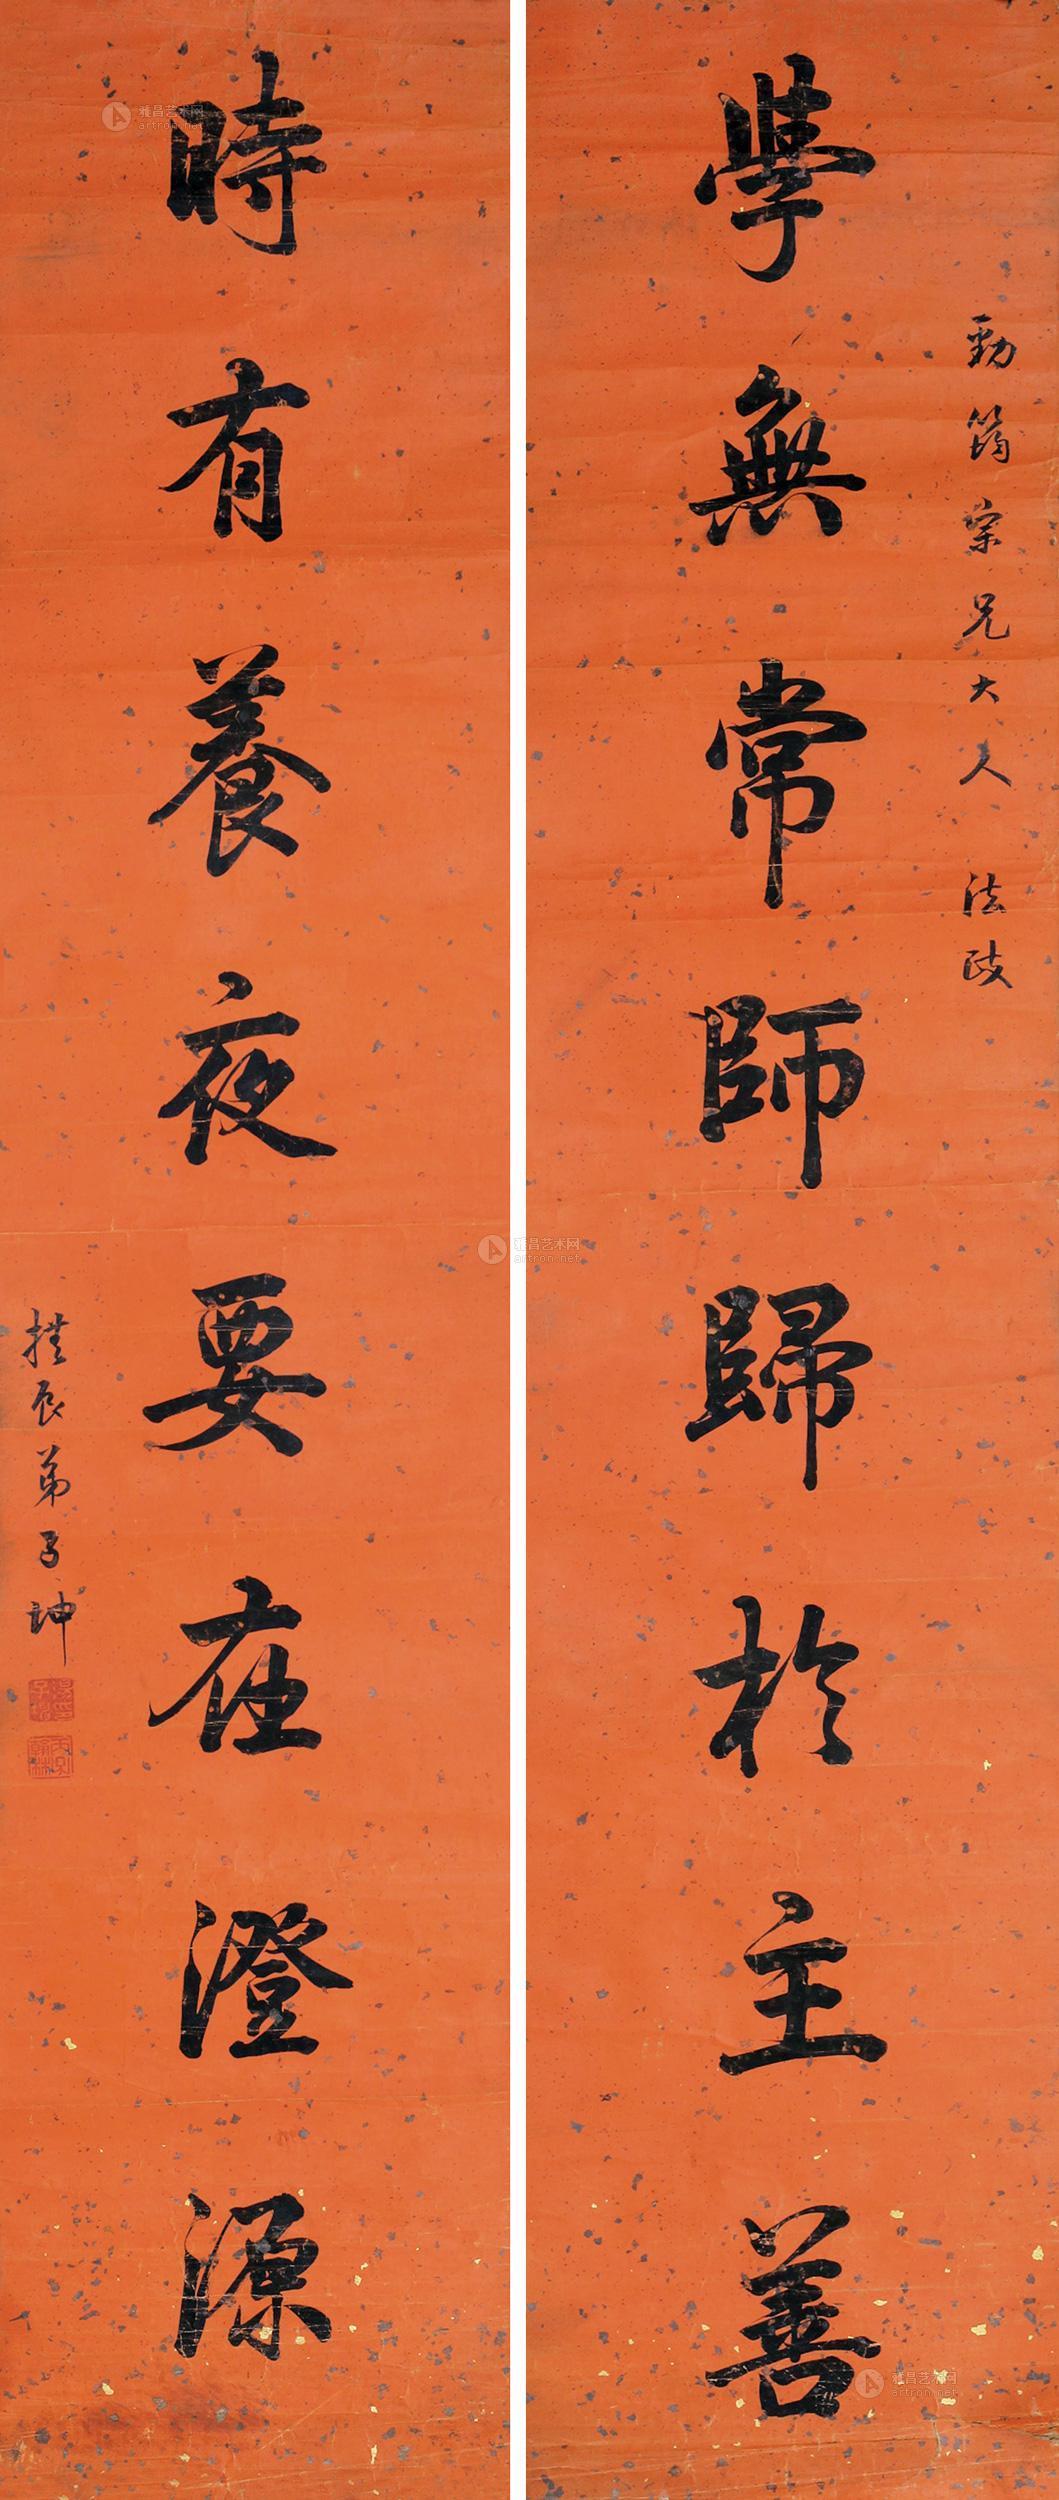 勁筠宗兄大人 法政
學無常師歸於主善
時有養夜要在澄源
拱辰弟子坤
雅昌艺术网
artron.net
雅昌艺术网
artron.net
雅昌艺术网
artron.net